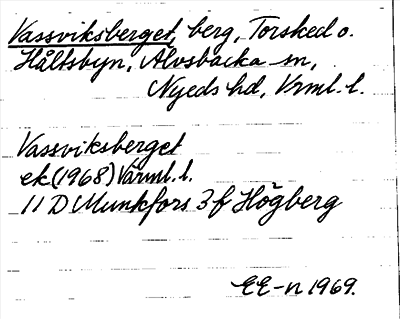 Vassviksberget, berg, Torsked o.
Håltsbyn, Älvsbacka sn,
Nyeds hd, Vrml. l.
Vassviksberget
ek. (1968) Värml. l.
11 D Munkfors 3 f Högberg
EE-n 1969.